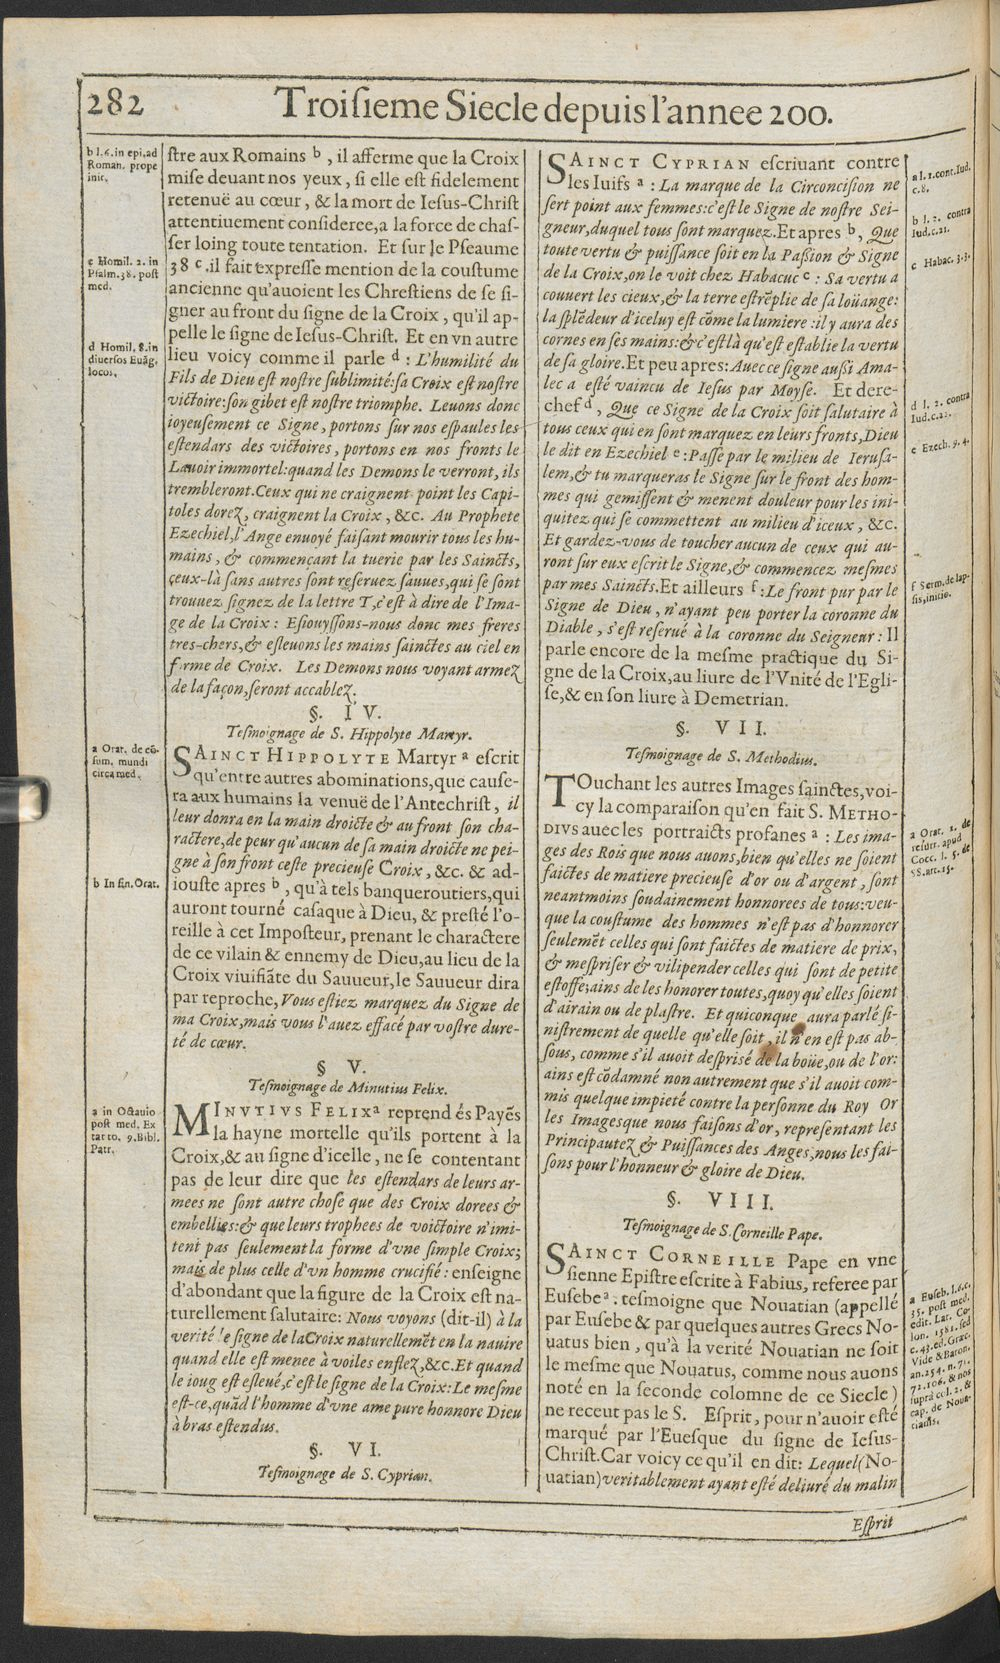 282
Troiſieme Siecle depuis l'annee 200.
b l.6.in epi.ad
Roman. prope
init.
c Homil. 2. in
Pſalm.38. poſt
med.
d Homil. 8.in
diuerſos Euãg.
locos.
a Orat. de cõ-
ſum. mundi
circa med.
b In fin. Orat.
a in Octauio
poſt med. Ex
tat to. 9.Bibl.
Patr.
ſtre aux Romains b , il afferme que la Croix
miſe deuant nos yeux , ſi elle eſt fidelement
retenuë au cœur , & la mort de Ieſus-Chriſt
attentiuement conſideree,a la force de chaſ-
ſer loing toute tentation. Et ſur le Pſeaume
38 c .il fait expreſſe mention de la couſtume
ancienne qu'auoient les Chreſtiens de ſe ſi-
gner au front du ſigne de la Croix , qu'il ap-
pelle le ſigne de Ieſus-Chriſt. Et en vn autre
lieu voicy comme il parle d : L'humilité du
Fils de Dieu eſt noſtre ſublimité:ſa Croix eſt noſtre
victoire:ſon gibet eſt noſtre triomphe. Leuons donc
ioyeuſement ce Signe, portons ſur nos eſpaules les
eſtendars des victoires, portons en nos fronts le
Lauoir immortel:quand les Demons le verront, ils
trembleront.Ceux qui ne craignent point les Capi-
toles dorez, craignent la Croix , &c. Au Prophete
Ezechiel,l'Ange enuoyé faiſant mourir tous les hu-
mains , & commençant la tuerie par les Saincts,
çeux-là ſans autres ſont reſeruez ſauues,qui ſe ſont
trouuez ſignez de la lettre T,c'eſt à dire de l'Ima-
ge de la Croix : Eſiouyſſons-nous donc mes freres
tres-chers,& eſleuons les mains ſainctes au ciel en
forme de Croix. Les Demons nous voyant armez
de la façon,ſeront accablez.
§. I V.
Teſmoignage de S. Hippolyte Martyr.
SAINCT HIPPOLYTE Martyr a eſcrit
qu'entre autres abominations,que cauſe-
ra aux humains la venuë de l'Antechriſt, il
leur donra en la main droicte & au front ſon cha-
ractere,de peur qu'aucun de ſa main droicte ne pei-
gne à ſon front ceſte precieuſe Croix , &c. & ad-
iouſte apres b , qu'à tels banqueroutiers,qui
auront tourné caſaque à Dieu, & preſté l'o-
reille à cet Impoſteur, prenant le charactere
de ce vilain & ennemy de Dieu,au lieu de la
Croix viuifiãte du Sauueur,le Sauueur dira
par reproche, Vous eſtiez marquez du Signe de
ma Croix,mais vous l'auez effacé par voſtre dure-
té de cœur.
§ V.
Teſmoignage de Minutius Felix.
MINVTIVS FELIX a reprend és Payẽs
la hayne mortelle qu'ils portent à la
Croix,& au ſigne d'icelle , ne ſe contentant
pas de leur dire que les eſtendars de leurs ar-
mees ne ſont autre choſe que des Croix dorees &
embellies:& que leurs trophees de voictoire n'imi-
tent pas ſeulement la forme d'vne ſimple Croix;
mais de plus celle d'vn homme crucifié : enſeigne
d'abondant que la figure de la Croix eſt na-
turellement ſalutaire: Nous voyons (dit-il) à la
verité le ſigne de la Croix naturellemẽt en la nauire
quand elle eſt menee à voiles enflez,&c.Et quand
le ioug eſt eſleué,c'eſt le ſigne de la Croix:Le meſme
eſt-ce,quãd l'homme d'vne ame pure honnore Dieu
à bras eſtendus.
§. V I.
Teſmoignage de S. Cyprian.
SAINCT CYPRIAN eſcriuant contre
les Iuifs a : La marque de la Circonciſion ne
ſert point aux femmes:c'eſt le Signe de noſtre Sei-
gneur,duquel tous ſont marquez.Et apres b, Que
toute vertu & puiſſance ſoit en la Paſſion & Signe
de la Croix,on le voit chez Habacuc c : Sa vertu a
couuert les cieux,& la terre eſt rẽplie de ſa loüange:
la ſplẽdeur d'iceluy eſt cõme la lumiere :il y aura des
cornes en ſes mains:& c'eſt là qu'eſt eſtablie la vertu
de ſa gloire.Et peu apres:Auec ce ſigne auſſi Ama-
lec a eſté vaincu de Ieſus par Moyſe. Et dere-
chef d , Que ce Signe de la Croix ſoit ſalutaire à
tous ceux qui en ſont marquez en leurs fronts,Dieu
le dit en Ezechiel e : Paſſe par le milieu de Ieruſa-
lem,& tu marqueras le Signe ſur le front des hom-
mes qui gemiſſent & menent douleur pour les ini-
quitez qui ſe commettent au milieu d'iceux , &c.
Et gardez-vous de toucher aucun de ceux qui au-
ront ſur eux eſcrit le Signe,& commencez meſmes
par mes Saincts.Et ailleurs f : Le front pur par le
Signe de Dieu , n'ayant peu porter la coronne du
Diable , s'eſt reſerué à la coronne du Seigneur : Il
parle encore de la meſme practique du Si-
gne de la Croix,au liure de l'Vnité de l'Egli-
ſe,& en ſon liure à Demetrian.
§. V I I.
Teſmoignage de S. Methodius.
TOuchant les autres Images ſainctes,voi-
cy la comparaiſon qu'en fait S. METHO-
DIVS auec les portraicts profanes a : Les ima-
ges des Rois que nous auons,bien qu'elles ne ſoient
faictes de matiere precieuſe d'or ou d'argent , ſont
neantmoins ſoudainement honnorees de tous:veu-
que la couſtume des hommes n'eſt pas d'honnorer
ſeulemẽt celles qui ſont faictes de matiere de prix,
& meſpriſer & vilipender celles qui ſont de petite
eſtoffe;ains de les honorer toutes,quoy qu'elles ſoient
d'airain ou de plaſtre. Et quiconque aura parlé ſi-
niſtrement de quelle qu'elle ſoit , il n'en eſt pas ab-
ſous, comme s'il auoit deſpriſé de la boüe,ou de l'or:
ains eſt cõdamné non autrement que s'il auoit com-
mis quelque impieté contre la perſonne du Roy Or
les Images que nous faiſons d'or, repreſentant les
Principautez & Puiſſances des Anges,nous les fai-
ſons pour l'honneur & gloire de Dieu.
§. V I I I.
Teſmoignage de S. Corneille Pape.
SAINCT CORNEILLE Pape en vne
ſienne Epiſtre eſcrite à Fabius, referee par
Euſebe a : teſmoigne que Nouatian (appellé
par Euſebe & par quelques autres Grecs No-
uatus bien , qu'à la verité Nouatian ne ſoit
le meſme que Nouatus, comme nous auons
noté en la ſeconde colomne de ce Siecle )
ne receut pas le S. Eſprit, pour n'auoir eſté
marqué par l'Eueſque du ſigne de Ieſus-
Chriſt.Car voicy ce qu'il en dit: Lequel (No-
uatian) veritablement ayant eſté deliuré du malin
Eſprit
a l. 1.cont.Iud.
c.8.
b l. 2. contra
Iud.c.21.
c Habac. 3.3.
d l. 2. contra
Iud.c.22.
e Ezech. 9. 4.
f Serm.de lap-
ſis,initio.
a Orat. 2. de
reſurr. apud
Cocc. l. 5. de
SS.art.15.
a Euſeb. l.6.c.
35. poſt med.
edit. Lat. Co-
lon. 1581. ſed
c.43.ed.Græc.
Vide & Baron.
an.254. n. 71.
72.106. & nos
ſuprà col. 2. &
cap. de Noua-
cianis.